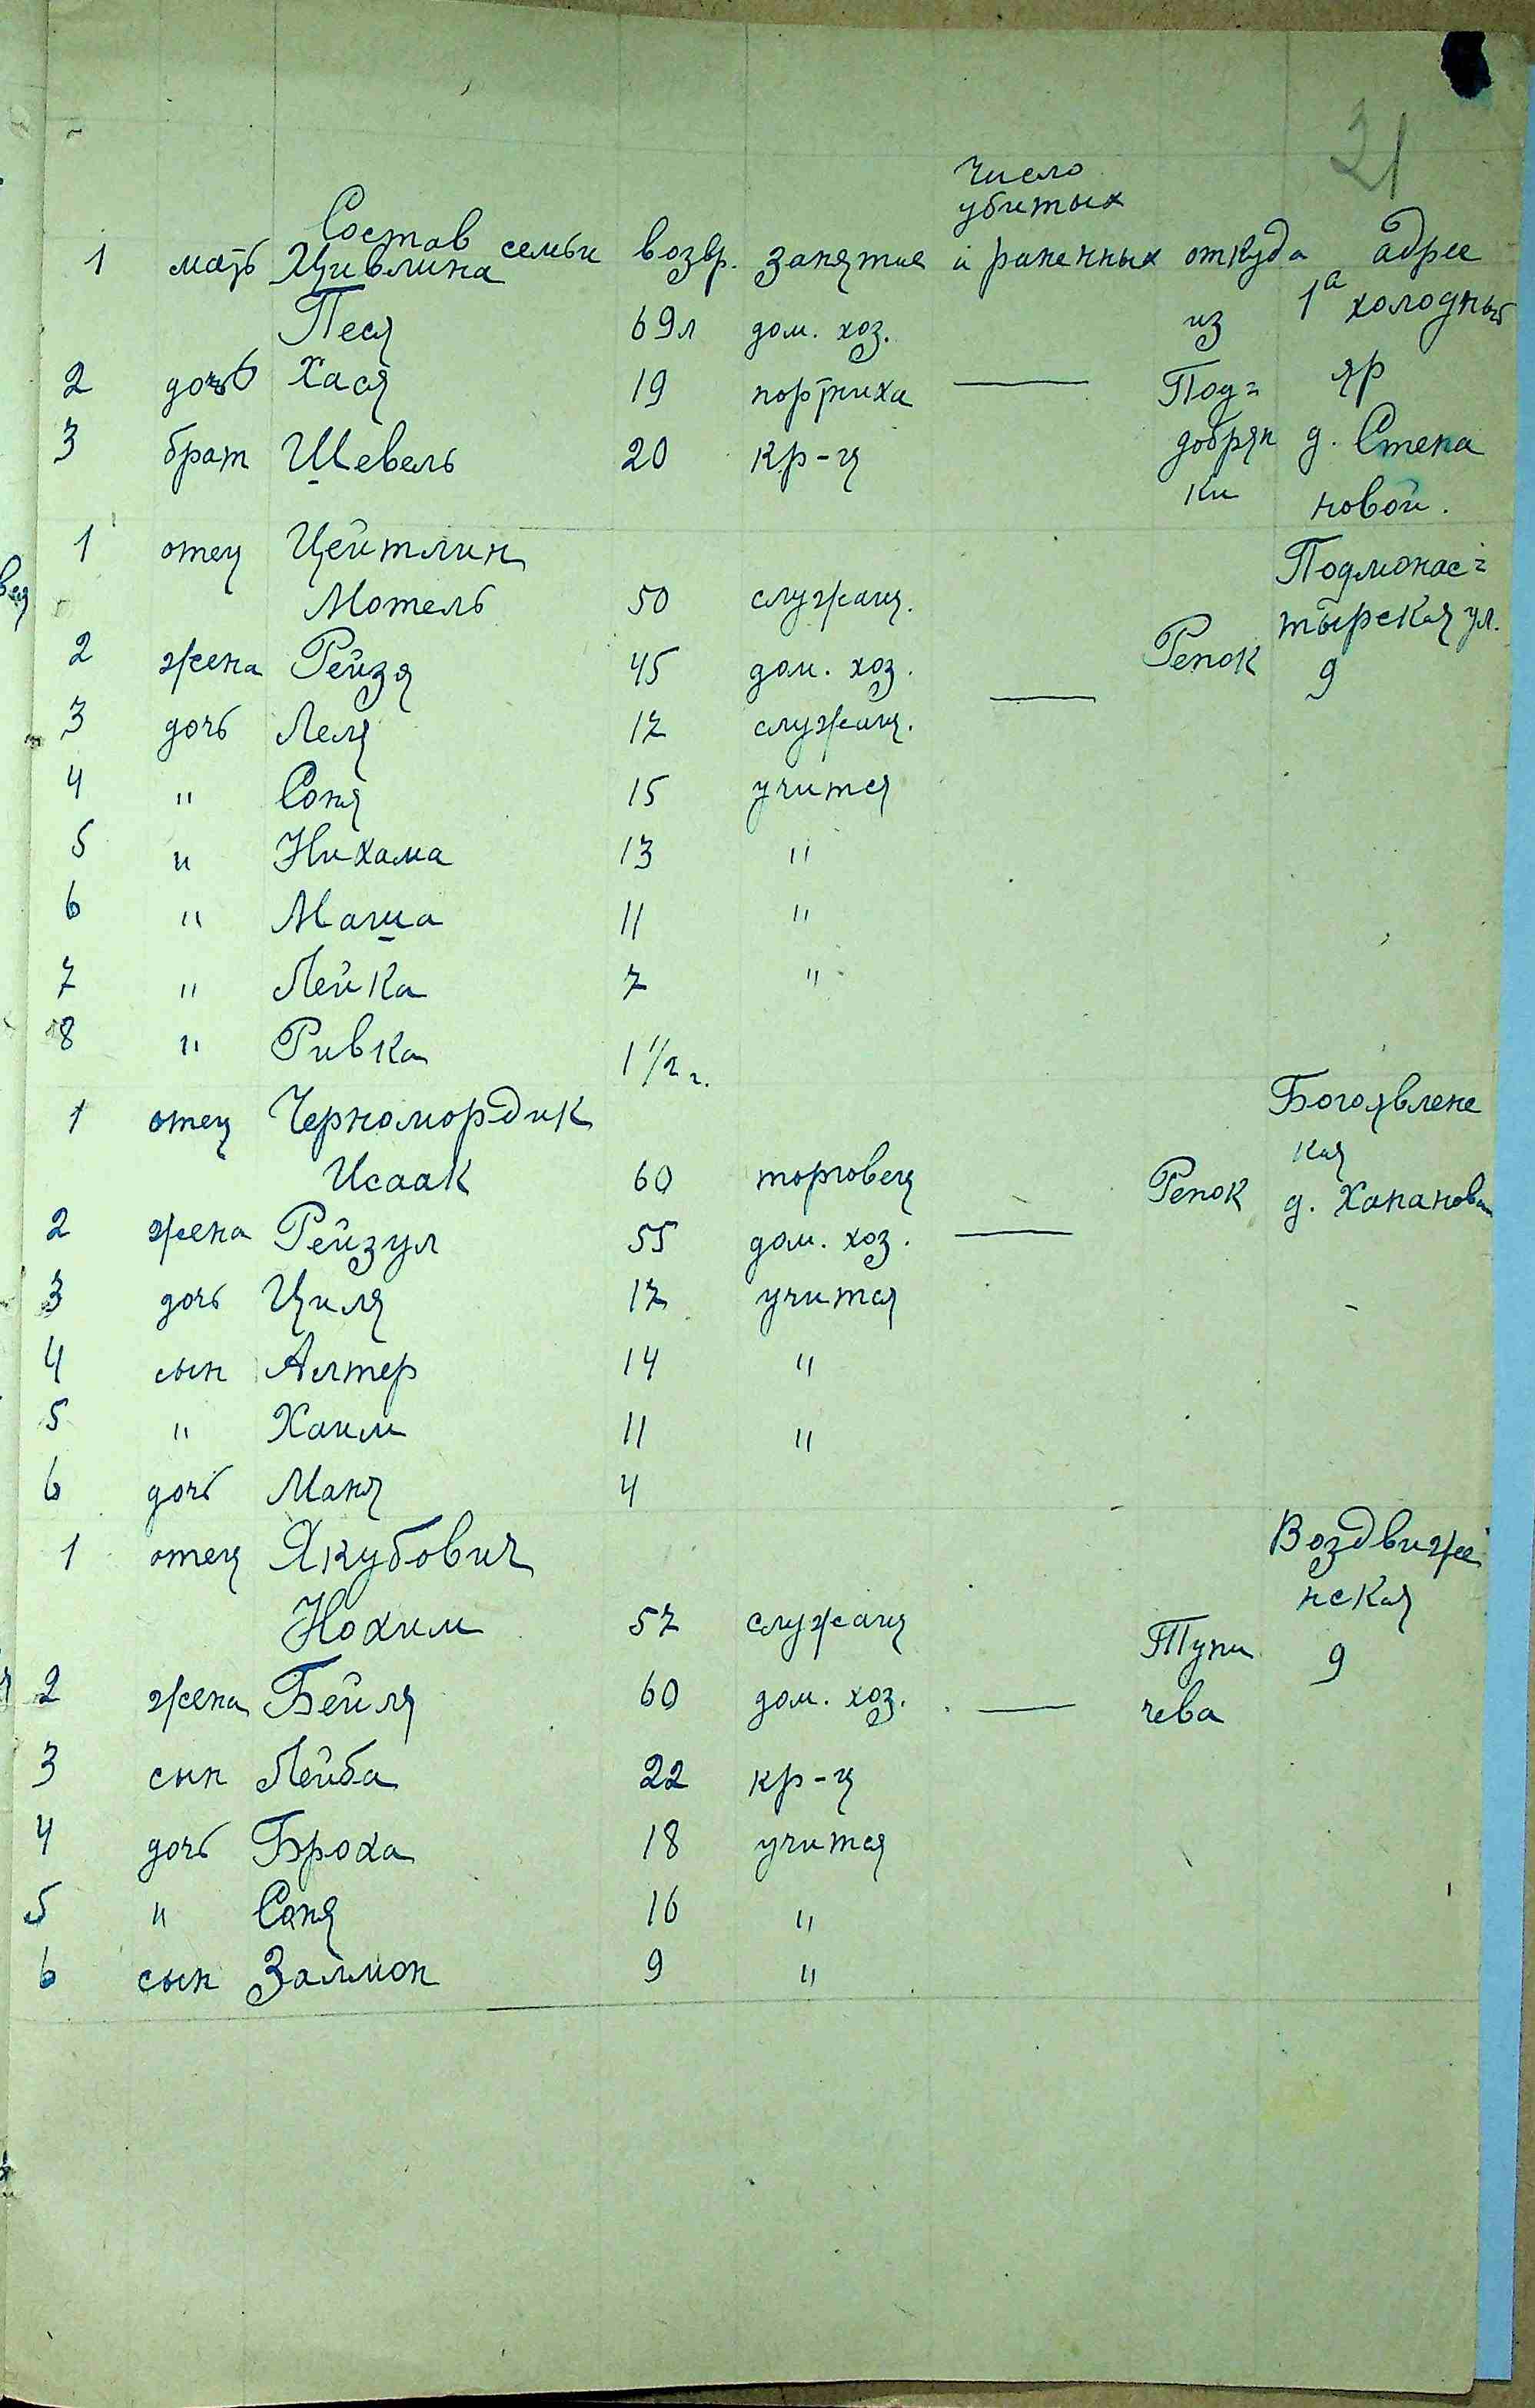 21
Число
убитых
Состав семьи возр. занятие и раненных откуда адрес
1 мать Цивлина 1а холодный
Песя 69л дом. хоз. из
2 дочь Хася 19 портниха — Под= яр
3 брат Шевель 20 кр-ц добрян д. Степа
ки новой.
1 отец Цейтлин Подмонас=
Мотель 50 служащ. тырская ул.
2 жена Рейзя 45 дом. хоз. — Репок 9
3 дочь Леля 17 служащ.
4 " Соня 15 учится
5 " Нихама 13 "
6 " Маша 11 "
7 " Лейка 7 "
8 " Ривка 1 1/2 г.
1 отец Черномордик Богоявленс
кая
Исаак 60 торговец Репок д. Хапанова
2 жена Рейзул 55 дом. хоз. —
3 дочь Циля 17 учится
4 сын Алтер 14 "
5 " Хаим 11 "
6 дочь Маня 4
1 отец Якубович Воздвиже
нская
Нохим 57 служащ Тупи 9
2 жена Бейля 60 дом. хоз. — чева
3 сын Лейба 22 кр-ц
4 дочь Броха 18 учится
5 " Соня 16 "
6 сын Залмон 9 "